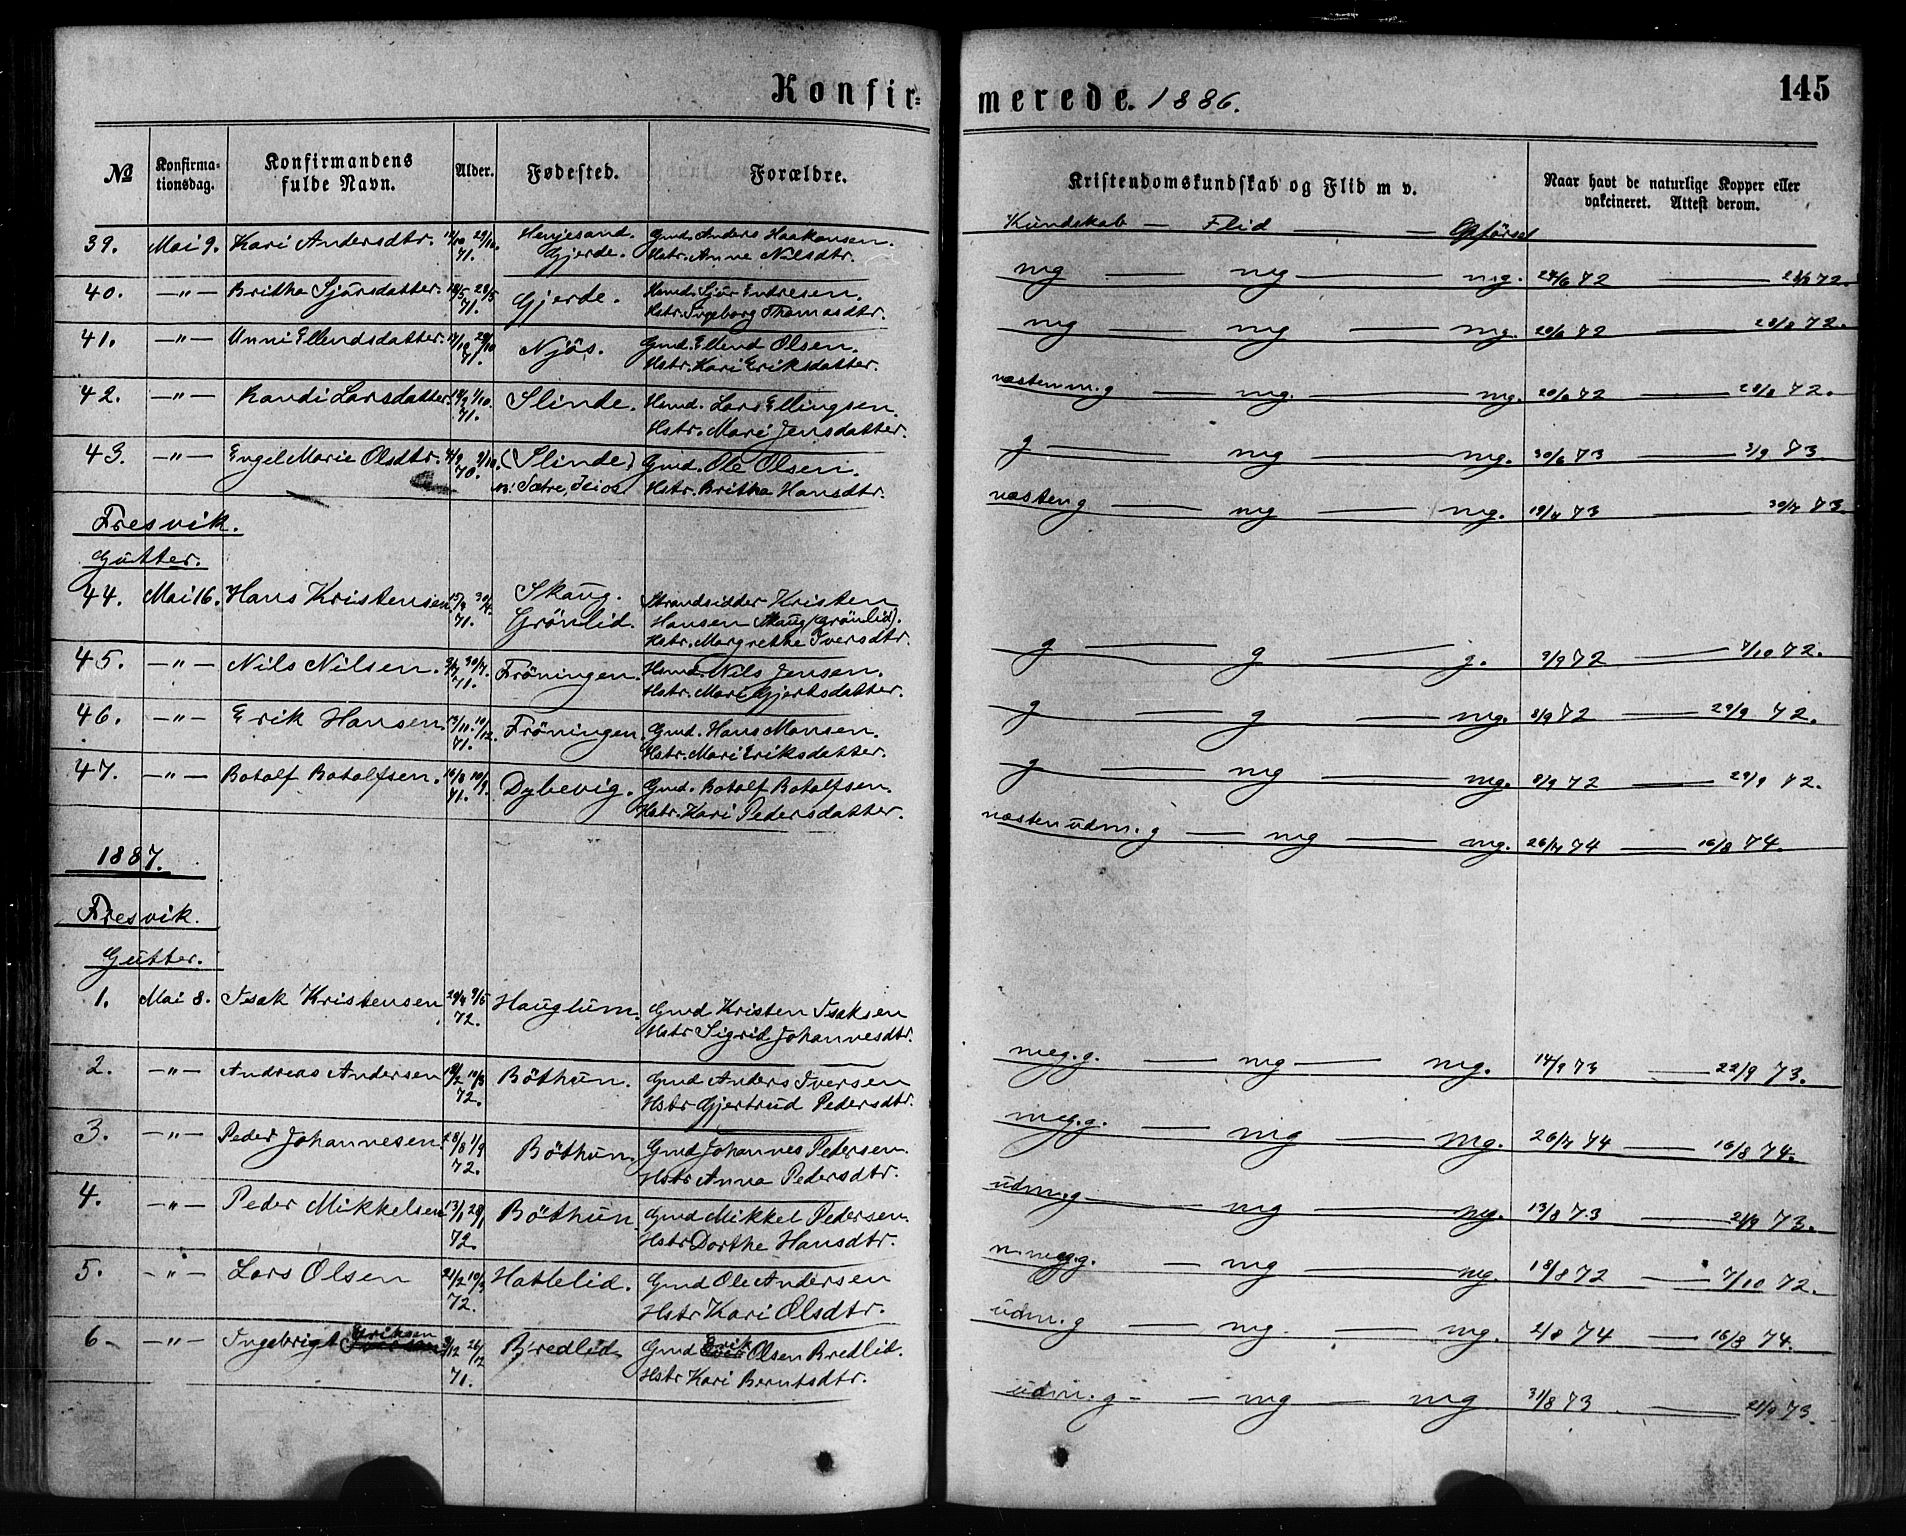 Konfir-merede. 1886. 145
№ Konfirma-tionsdag. Konfirmandens fulde Navn. Alder. Fødested. Forældre. Kristendomskundskab og Flid m v. Naar havt de naturlige Kopper eller vakcineret. Attest derom.
Kundskab — Flid — — Opförsel
39. Mai 9. Kari Andersdtr. 29/10. 71. Henjesand. Gmd. Anders Haakonsen.
Gjerde. Hstr. Anne Nilsdtr.
mg — mg — mg. 24/6 72 — 72.
40. —"— Britha Sjursdatter. 28/5 71. Gjerde. Hsmd. Sjur Entresen.
Hstr. Ingeborg Thomasdtr.
mg — mg — mg. 20/6 72 — 28/8 72.
41. —"— Unni Ellendsdatter. 29/10 71. Njøs. Gmd. Ellend Olsen.
Hstr. Kari Eriksdatter.
næsten m.g — mg. — mg. 20/6 72 — 28/8 72.
42. —"— Randi Larsdatter. 1/10. 71. Slinde. Hsmd. Lars Ellingsen.
Hstr. Mari Jensdatter.
g — mg — mg. 30/6 73 — 3/9 73.
43. —"— Engel Marie Olsdtr. 70. (Slinde) Gmd. Ole Olsen.
Hstr. Britha Hansdtr.
næsten g — mg — mg. 19/4 73 — 30/4 73.
Fresvik.
Gutter.
44. Mai 16. Hans Kristensen 71. Skaug. Strandsidder Kristen
Grönlid. Hansen Skaug (Grönlid).
Hstr. Margrethe Iversdtr.
g — g — g. 3/9 72 — 7/10 72.
45. —"— Nils Nilsen. 30/7. 71. Fröningen. Hsmd. Nils Jensen.
Hstr. Mari Gjertsdatter.
g — g — mg. 8/9 72 — 29/9 72.
46. —"— Erik Hansen. 13/11. 10/12. 71. Fröningen. Gmd. Hans Monsen.
Hstr. Mari Eriksdatter.
g — mg — mg. 8/9 72 — 29/9 72.
47. —"— Botolf Botolfsen. 16/8 10/9. 71. Dybevig. Gmd. Botolf Botolfsen.
Hstr. Kari Pedersdatter.
næsten udm. g — mg — mg. 26/7 74 — 16/8 74.
1887.
Fresvik.
Gutter.
1. Mai 8. Isak Kristensen 29/4 9/5 72. Hauglum. Gmd Kristen Isaksen
Hstr Sigrid Johannesdtr.
meg. g. — mg — mg. 14/9 73 — 22/9 73.
2. —"— Andreas Andersen 18/2 10/3 72. Böthun. Gmd Anders Iversen
Hstr Gjertrud Pedersdtr.
meg. g. — mg — mg. 26/7 74 — 16/8 74.
3. —"— Peder Johannesen. 28/8 1/9 72. Böthun. Gmd Johannes Pedersen.
Hstr Anna Pedersdtr.
udm. g — mg — mg. 13/8 73 — 21/9 73.
4. —"— Peder Mikkelsen 13/1 28/1 72. Böthun. Gmd Mikkel Pedersen.
Hstr Dorthe Hansdtr.
n. meg. g. — mg — mg. 18/8 72 — 7/10 72.
5. —"— Lars Olsen 21/2 10/3 72. Hattelid. Gmd Ole Andersen
Hstr Kari Olsdtr.
udm. g — mg. — mg. 2/8 74 — 16/8 74.
6 — —"— Ingebrigt Eriksen 26/12 71. Bredlid Gmd Erik Olsen Bredlid.
Hstr Kari Berntsdtr.
udm. g — — mg — mg 31/8 73 — 21/9 73.